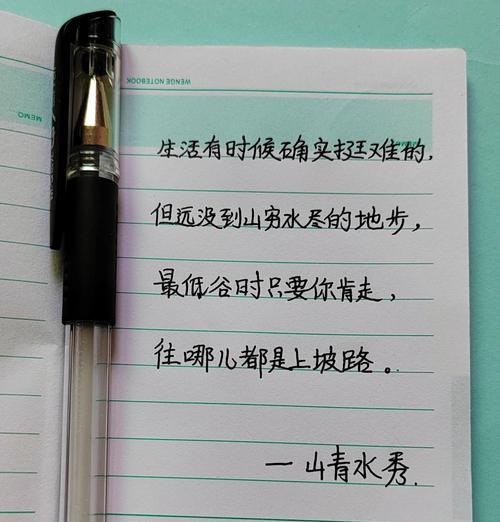 WENGE NOTEBOOK
MEMO
生活有时候确实挺难的.
但远没到山穷水尽的地步，
最低谷时只要你肯走，
往哪儿都是上坡路。
一山青水秀.